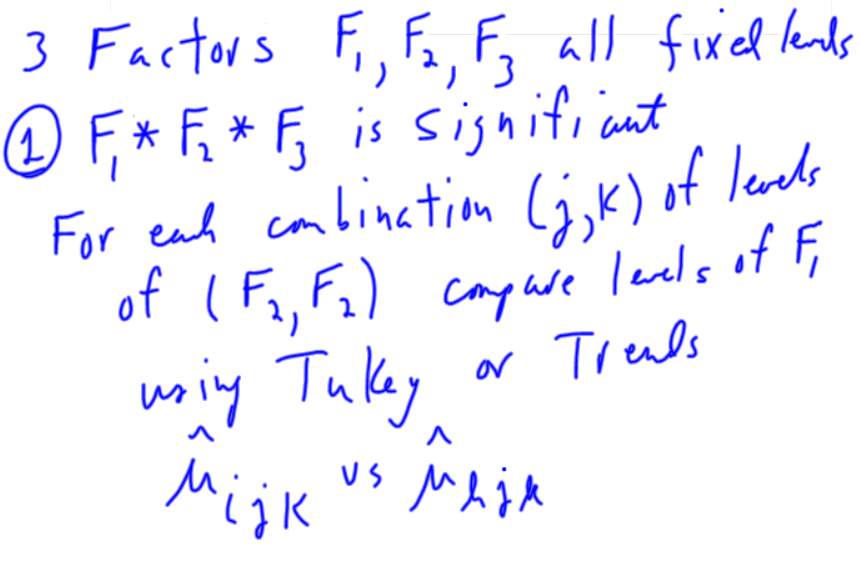 3 Factors F₁, F₂, F₃ all fixed levels
① F₁ * F₂ * F₃ is signifiant
For each combination (j,k) of levels
of (F₂, F₂) compare levels of F₁
using Tukey or Trends
μ̂ijk vs μ̂hjk